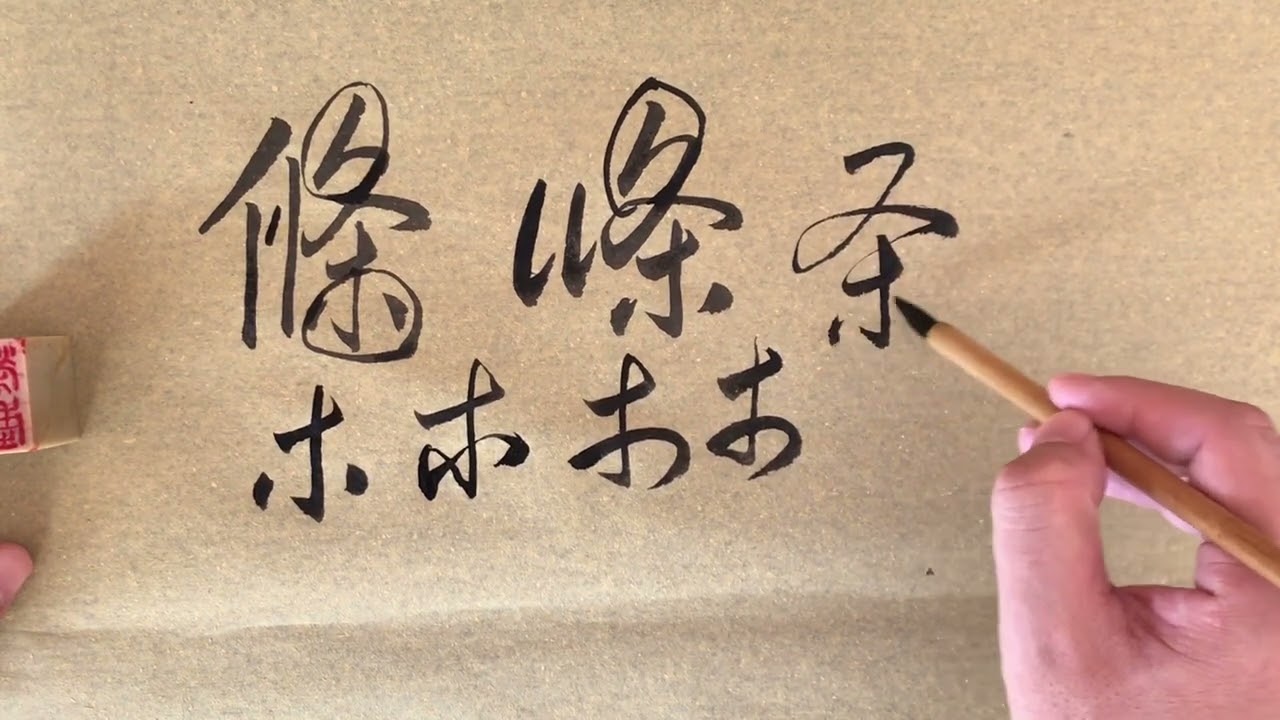 條 條 条
木 木 木 木